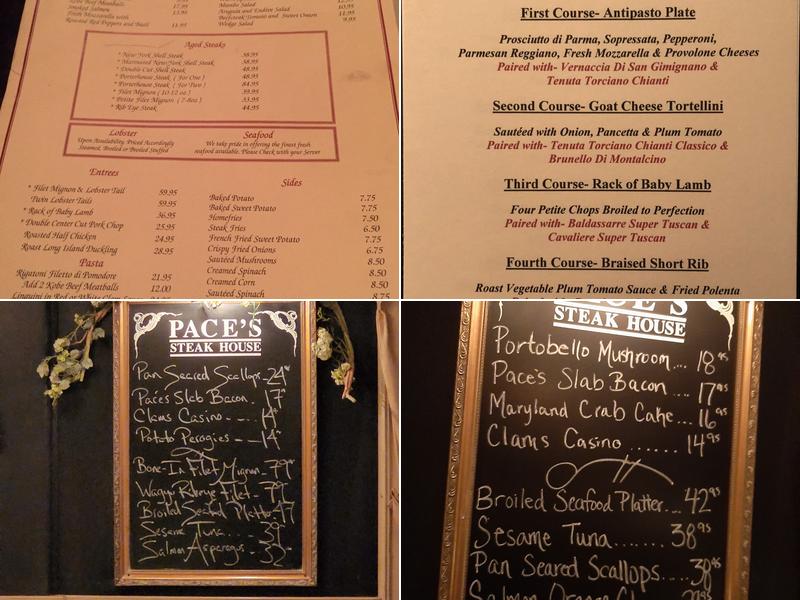 Kobe Beef Meatballs 17.95
Smoked Salmon 13.95
Fresh Mozzarella with
Roasted Red Peppers and Basil 11.95
Mambo Salad
Arugula and Endive Salad 10.95
Beefsteak Tomato and Sweet Onion 11.95
Wedge Salad 9.95
Aged Steaks
* New York Shell Steak 38.95
* Marinated New York Shell Steak 38.95
* Double Cut Shell Steak 48.95
* Porterhouse Steak ( For One ) 48.95
* Porterhouse Steak ( For Two ) 84.95
* Filet Mignon ( 10-12 oz ) 39.95
* Petite Filet Mignon ( 7-8oz ) 33.95
* Rib Eye Steak 44.95
Lobster
Upon Availability, Priced Accordingly
Steamed, Broiled or Broiled Stuffed
Seafood
We take pride in offering the finest fresh
seafood available. Please Check with your Server
Entrees
* Filet Mignon & Lobster Tail 59.95
Twin Lobster Tails 59.95
* Rack of Baby Lamb 36.95
* Double Center Cut Pork Chop 25.95
Roasted Half Chicken 24.95
Roast Long Island Duckling 28.95
Pasta
Rigatoni Filetto di Pomodore 21.95
Add 2 Kobe Beef Meatballs 12.00
Linguini in Red or White Clam Sauce
Sides
Baked Potato 7.75
Baked Sweet Potato 7.75
Homefries 7.50
Steak Fries 6.50
French Fried Sweet Potato 7.75
Crispy Fried Onions 6.75
Sautéed Mushrooms 8.50
Creamed Spinach 8.50
Creamed Corn 8.50
Sautéed Spinach 8.75
First Course- Antipasto Plate
Prosciutto di Parma, Sopressata, Pepperoni,
Parmesan Reggiano, Fresh Mozzarella & Provolone Cheeses
Paired with- Vernaccia Di San Gimignano &
Tenuta Torciano Chianti
Second Course- Goat Cheese Tortellini
Sautéed with Onion, Pancetta & Plum Tomato
Paired with- Tenuta Torciano Chianti Classico &
Brunello Di Montalcino
Third Course- Rack of Baby Lamb
Four Petite Chops Broiled to Perfection
Paired with- Baldassarre Super Tuscan &
Cavaliere Super Tuscan
Fourth Course- Braised Short Rib
Roast Vegetable Plum Tomato Sauce & Fried Polenta
PACE'S
STEAK HOUSE
Pan Seared Scallops - 24
Pace's Slab Bacon - 17
Clams Casino - - - - 14
Potato Perogies - - 14
Bone-In Filet Mignon - 79
Wagyu Ribeye Filet - 79
Broiled Seafood Platter - 47
Sesame Tuna . . . 39
Salmon Asparagus - 32
PACE'S
STEAK HOUSE
Portobello Mushroom... 18 95
Pace's Slab Bacon .... 17 95
Maryland Crab Cake... 16 95
Clams Casino ...... 14 95
Broiled Seafood Platter... 42 95
Sesame Tuna....... 38 95
Pan Seared Scallops.... 38 95